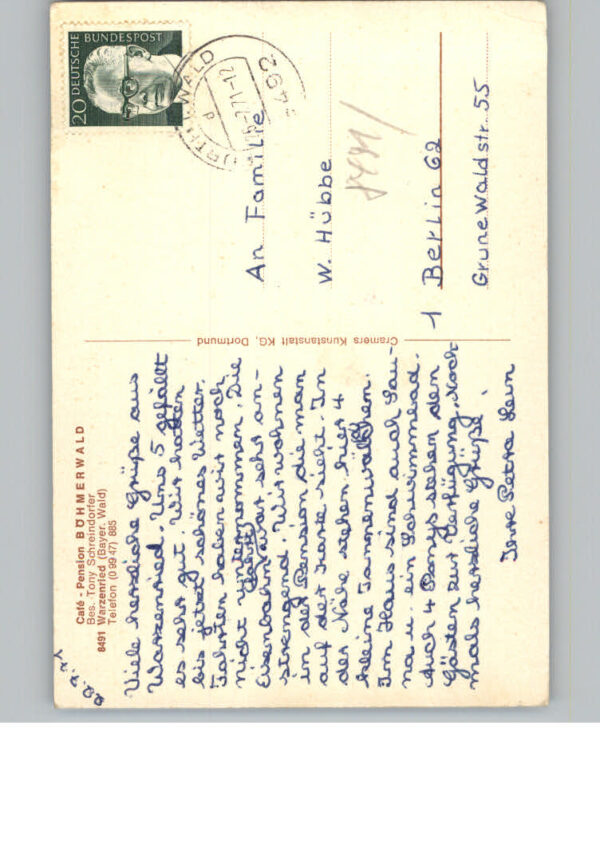 Café - Pension BÖHMERWALD
Bes. Tony Schreindorfer
8491 Warzenried (Bayer. Wald)
Telefon (0 99 47) 885
Viele herzliche Grüße aus
Warzenried. Uns 5 gefällt
es sehr gut. Wir hatten
bis jetzt schönes Wetter.
Fahrten haben wir noch
nicht unternommen. Die
Eisenbahnfahrt war sehr an-
strengend. Wir wohnen
in der Pension die man
auf der Karte sieht. In
der Nähe stehen hier 4
kleine Tannenwäldchen.
Im Haus sind auch Sau-
na u. ein Schwimmbad.
Auch 4 Ponys stehen den
Gästen zur Verfügung. Noch
mals herzliche Grüße,
Eure Petra
Cramers Kunstanstalt KG, Dortmund
20 DEUTSCHE BUNDESPOST
WALD
8492
An Familie
W. Hübbe
1 Berlin 62
Grunewaldstr. 55